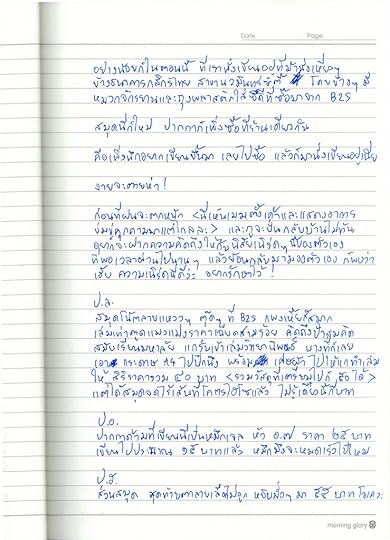 Date. Page:
อย่างน้อยก็ในตอนนี้ ที่เรานั่งเขียนอยู่ที่ม้านั่งเหงือๆ
ข้างธนาคารกสิกรไทย สาขา โดยข้างๆ มี
หมวกจักรยานและถุงพลาสติกใส่ซีดีที่ซื้อมาจาก B2S
สมุดนี่ก็ใหม่ ปากกาก็เพิ่งซื้อที่ร้านเดียวกัน
คือเพิ่งนึกอยากเขียนขึ้นมา เลยไปซื้อ แล้วก็มานั่งเขียนอยู่เนี่ย
ง่ายจะตายห่า!
ก่อนที่ฝนจะตกหนัก <นี่เห็นเมฆตั้งเค้าและแสดงอาการ
ข่มขู่คุกคามมาแต่ไกลละ> และกูจะปั่นกลับบ้านไม่ทัน
อยากจะฝากความคิดถึงให้ นิสัยเนิร์ดๆ นี้ของตัวเอง
ที่พอเวลาผ่านไปนานๆ แล้วย้อนกลับมามองตัวเอง ก็พบว่า
เฮ้ย ความเนิร์ดนี่ดีว่ะ อยากรักษาไว้!
ป.ล.
สมุดโน้ตลายแหววๆ ตุ๊ดๆ ที่ B2S แพงเหี้ยสี่สมาก
เล่มเท่าตูดแมวแม่งราคาเฉียดสามร้อย คิดถึงป้าสมคิด
สมัยเรียนมหาลัย แกรับเข้าเล่มวิทยานิพนธ์ บางทีก็เลย
เอากระดาษ A4 ไปปึกนึง พร้อม ไปให้แกทำเล่ม
ให้ สิริราคารวม ๔๐ บาท <รวมวัสดุที่เตรียมไปก็ ๕๐ได้>
แต่ได้สมุดจดไร้เส้นที่โคตรไฮโซแล้ว ไม่รู้เดี๋ยวนี้กี่บาท
ป.อ.
ปากกาด้ามที่เขียนนี่เป็นหมึกเจล หัว ๐.๗ ราคา ๒๕ บาท
เขียนไปประมาณ ๑๕ บาทแล้ว หมึกมึงจะหมดเร็วไปไหม
ป.ฮ.
ส่วนสมุด สุดท้ายตาลายเลือกไม่ถูก หยิบมั่วๆ มา ๕๕ บาท โอเคว่ะ
morning glory